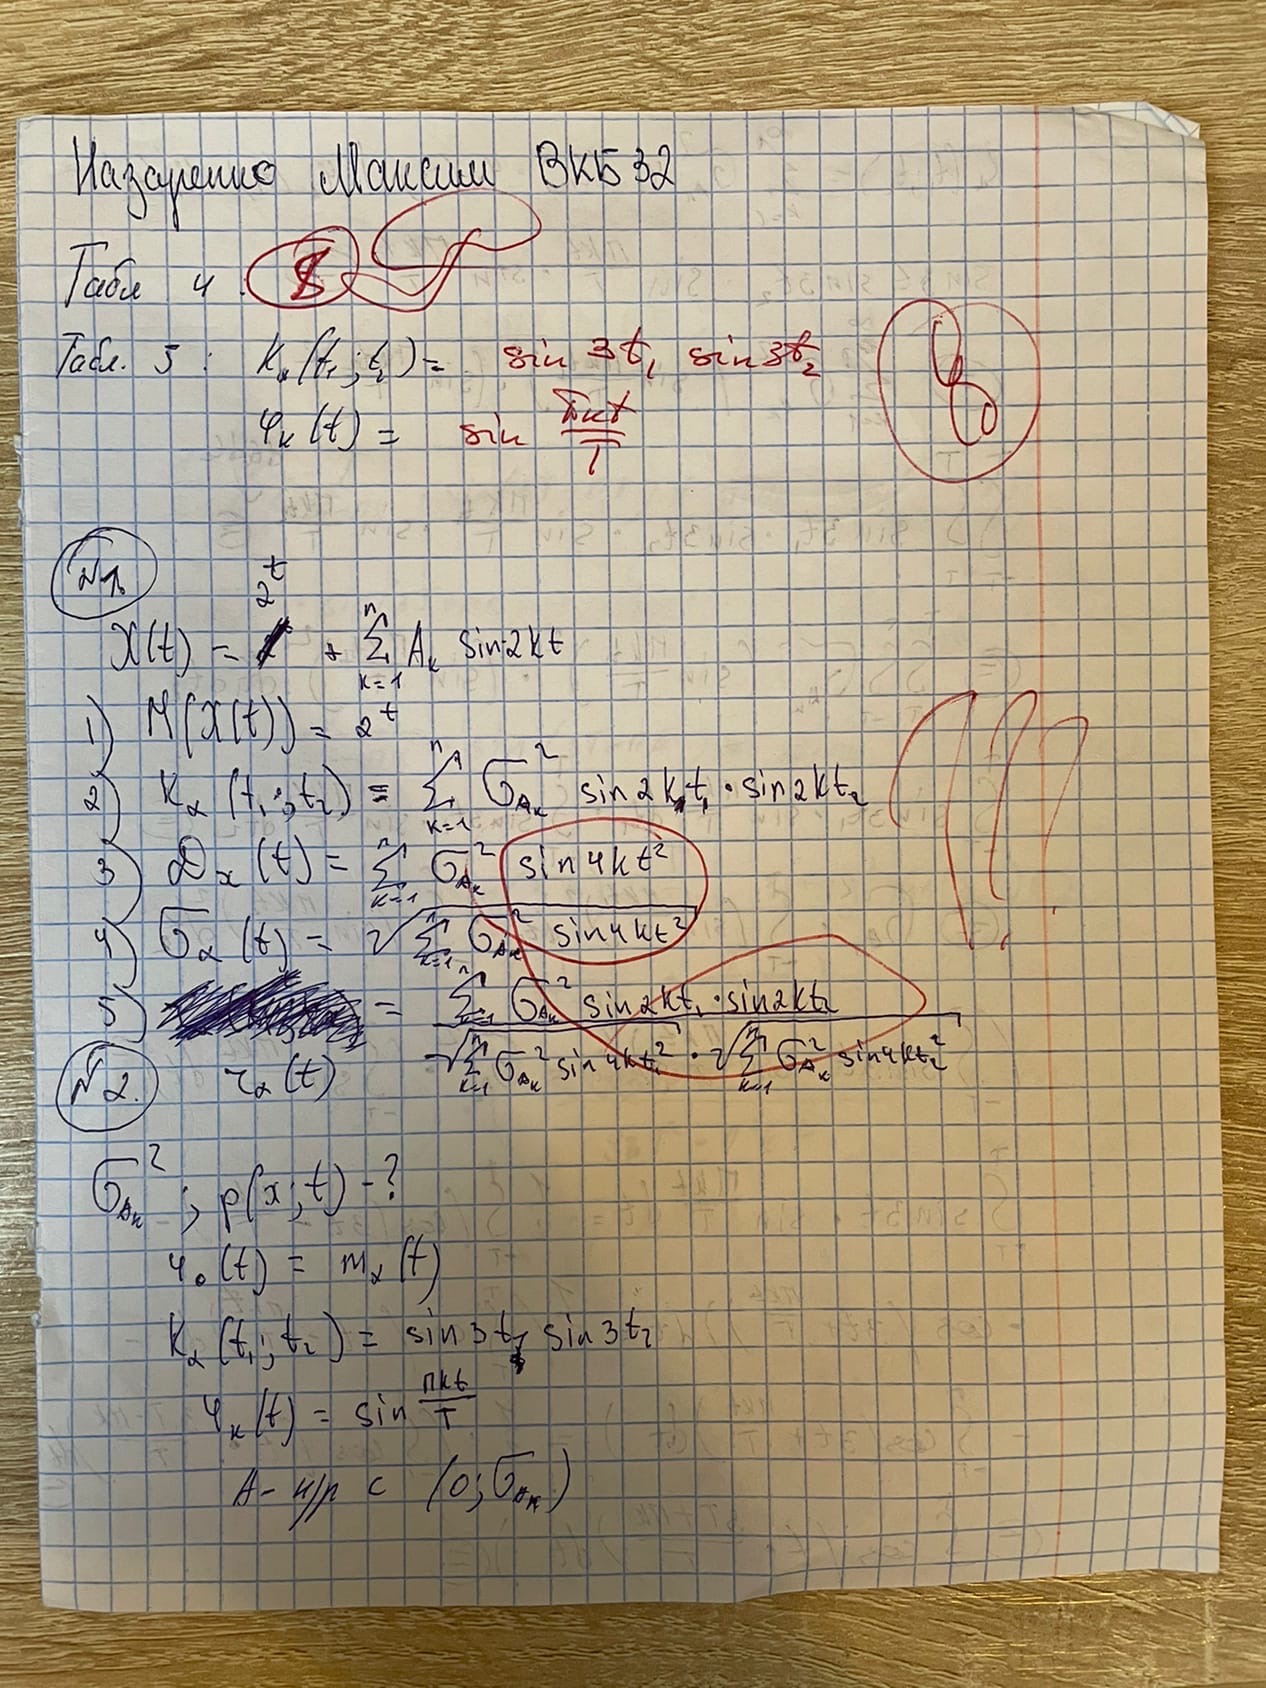 Назаренко Максим ВКБ32
Табл 4.
Табл. 5: Kₓ(t₁;t₂) = sin 3t₁ sin 3t₂
φₖ(t) = sin πkt/T
8
№1.
X(t) = 2^t + Σ_{k=1}^{n} Aₖ sin2kt
1) M(X(t)) = 2^t
2) Kₓ(t₁;t₂) = Σ_{k=1}^{n} σ_{Aₖ}² sin2kt₁·sin2kt₂
3) Dₓ(t) = Σ_{k=1}^{n} σ_{Aₖ}² sin4kt²
4) σₓ(t) = √(Σ_{k=1}^{n} σ_{Aₖ}² sin4kt²)
5) rₓ(t) = (Σ_{k=1}^{n} σ_{Aₖ}² sin2kt₁·sin2kt₂) / (√(Σ_{k=1}^{n} σ_{Aₖ}² sin4kt₁²) · √(Σ_{k=1}^{n} σ_{Aₖ}² sin4kt₂²))
№2.
σ_{Aₖ}²; p(x;t) - ?
φ₀(t) = mₓ(t)
Kₓ(t₁;t₂) = sin3t₁ sin3t₂
φₖ(t) = sin πkt/T
A - н/р с (0;σ_{Aₖ})